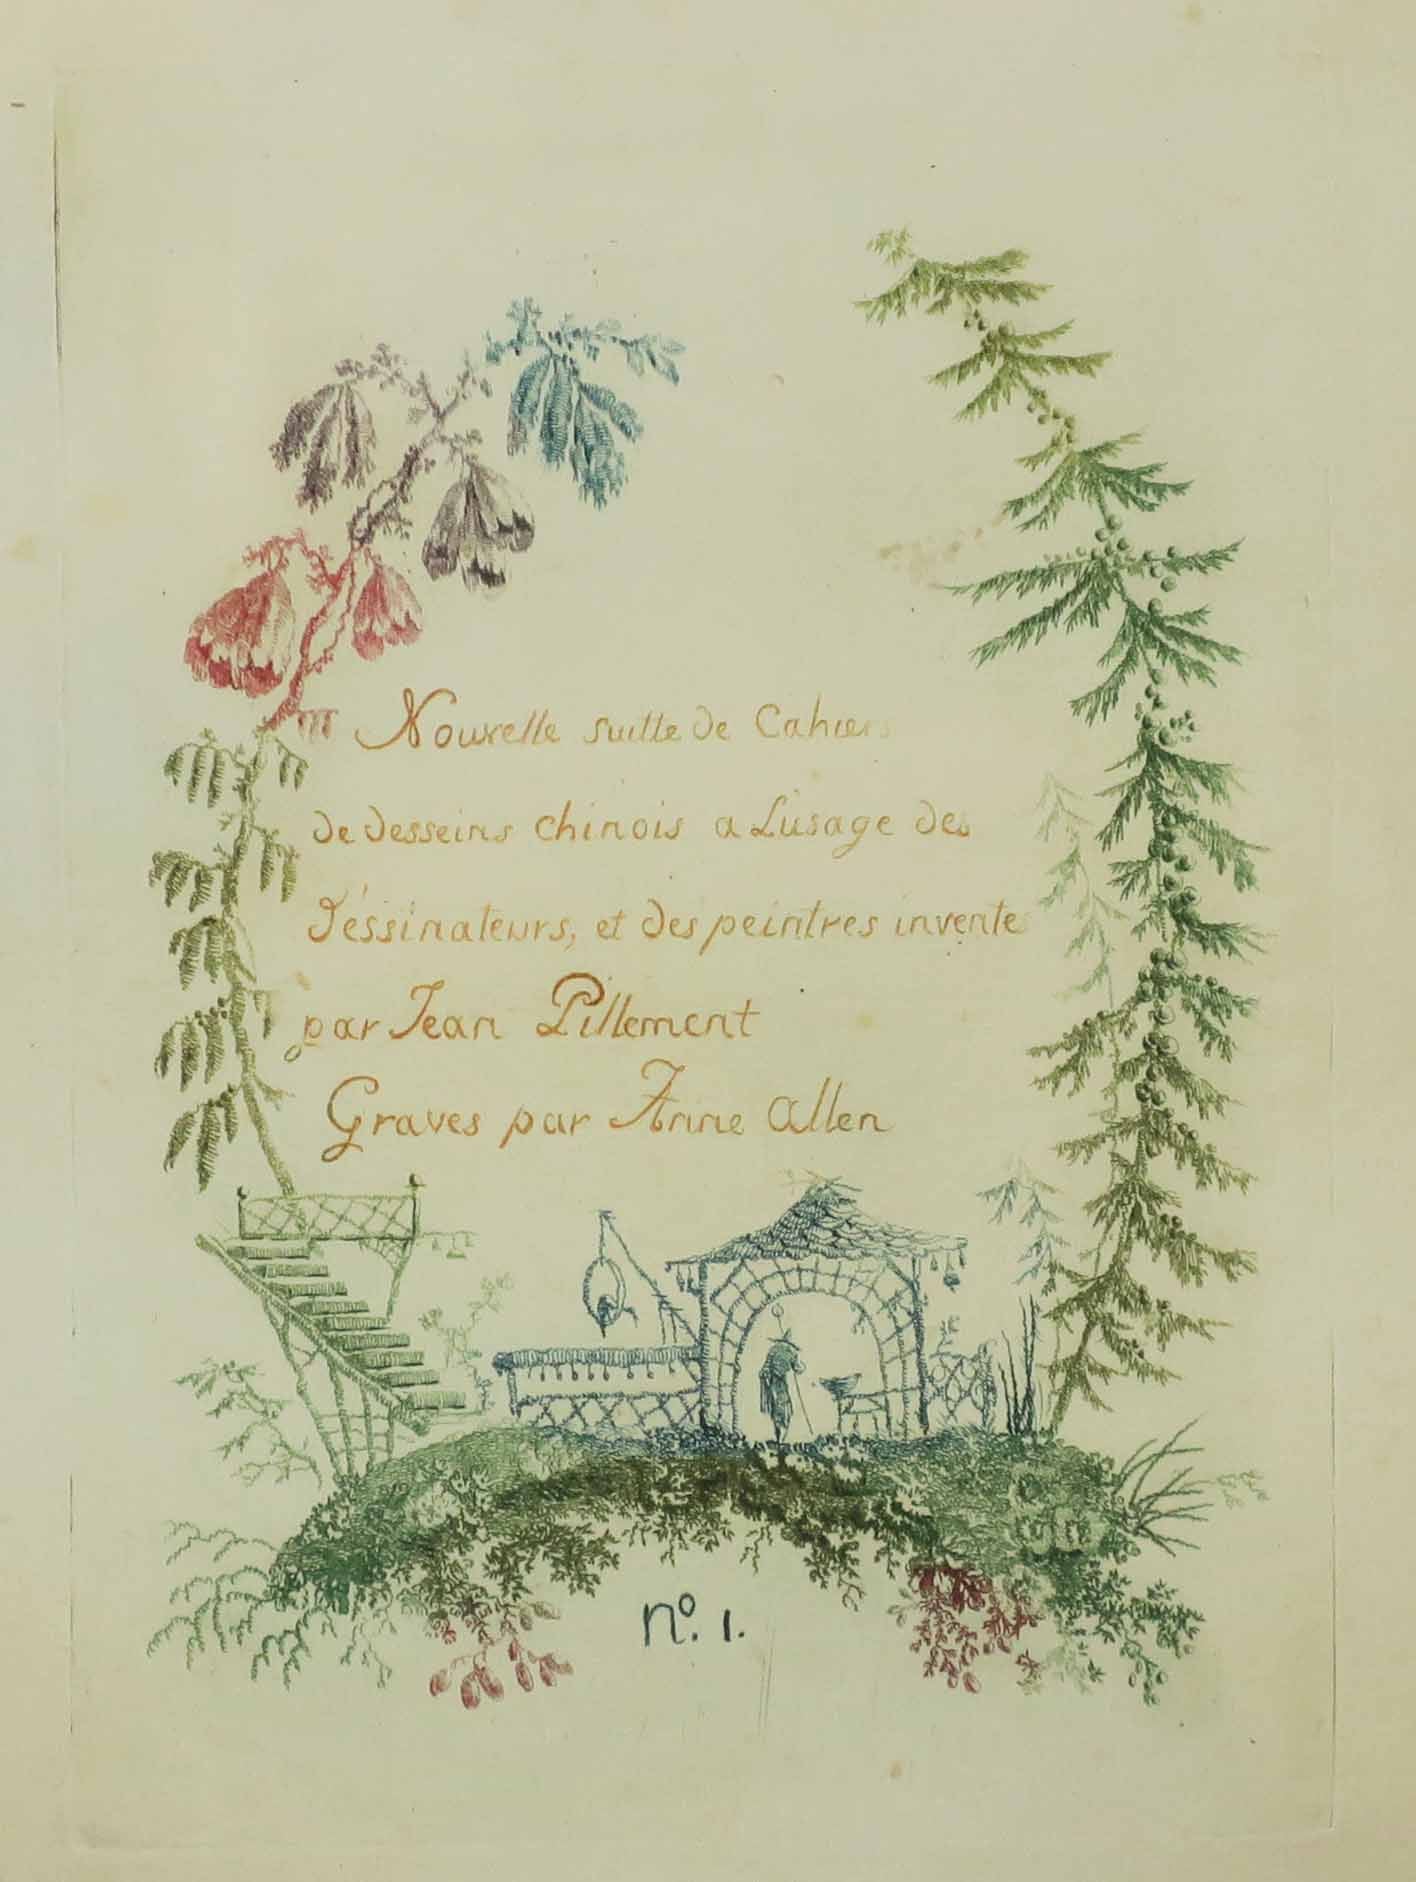 Nouvelle suitte de Cahiers
de desseins chinois a L'usage des
déssinateurs, et des peintres inventes
par Jean Pillement
Graves par Anne Allen
nº. 1.